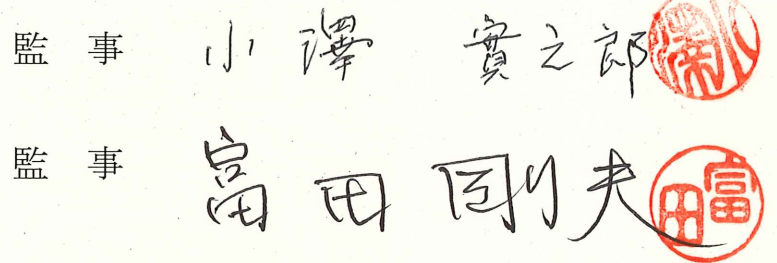 監事 小澤 實之郎
監事 富田 剛夫
富田